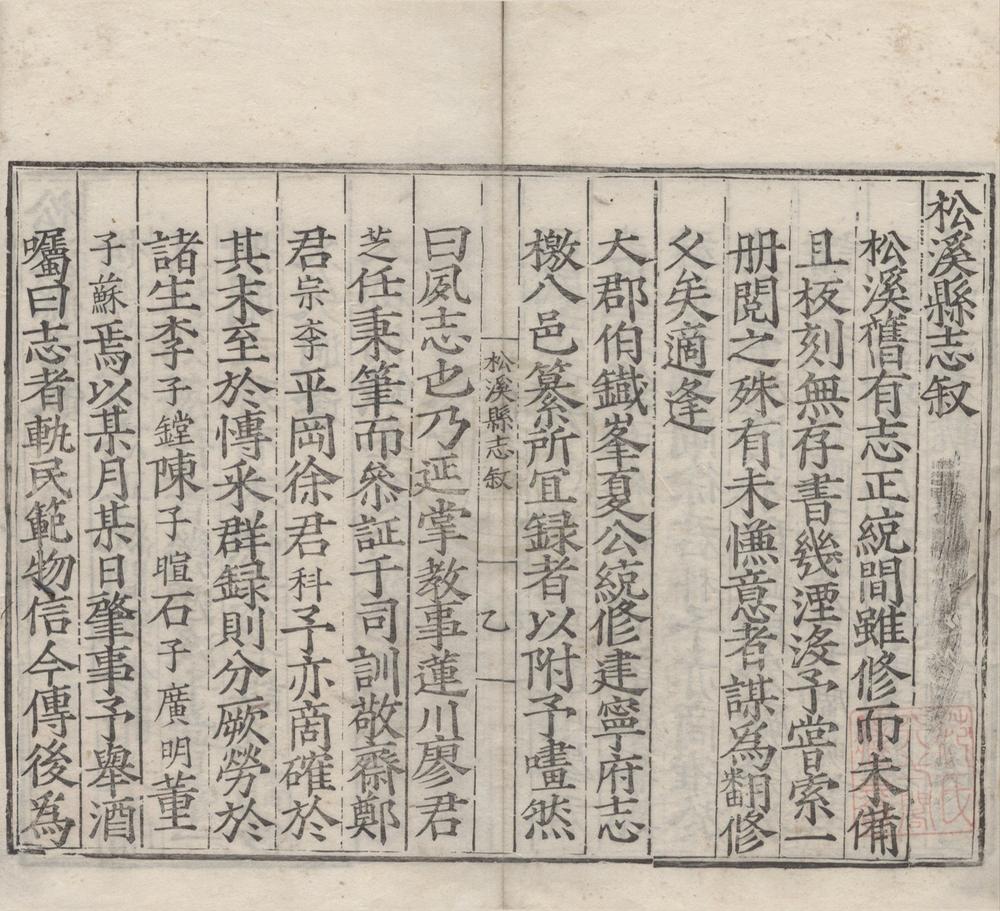 松溪縣志叙
松溪舊有志正統間雖修而未備
且板刻無存書幾湮没予嘗索一
册閱之殊有未慊意者謀為翻修
父矣適逢
大郡伯鐡峯夏公統修建寧府志
檄八邑纂所宜録者以附予𦘕然
松溪縣志叙
乙
曰夙志也乃延掌教事蓮川廖君
芝任秉筆而叅証于司訓敬齋鄭
君宗李平岡徐君科予亦啇確於
其末至於慱采群録則分厥勞於
諸生李子鏜陳子暄石子廣明董
子蘇焉以某月某日肇事予舉酒
囑曰志者軌民範物信今傳後為